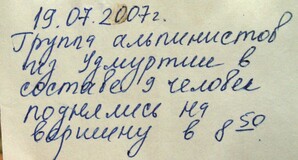 19.07.2007г.
Группа альпинистов
из Удмуртии в
составе 9 человек
поднялись на
вершину в 8 50